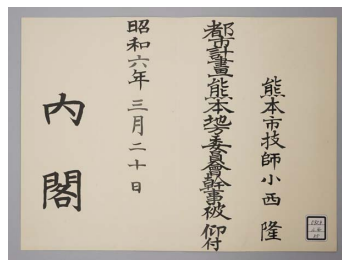 熊本市技師小西隆
都市計畫熊本地方委員會幹事被仰付
昭和六年三月二十日
内閣